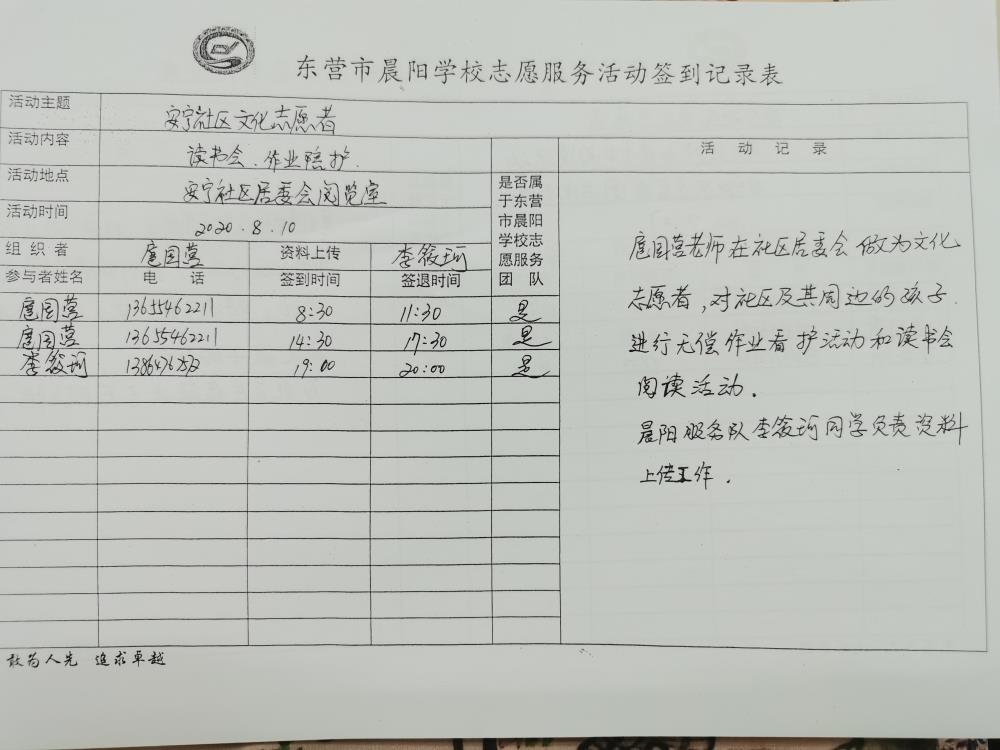 东营市晨阳学校志愿服务活动签到记录表
活动主题 安宁社区文化志愿者
活动内容 读书会.作业陪护.
活动地点 安宁社区居委会阅览室
活动时间 2020.8.10
组织者 扈国营 资料上传 李筱珂
参与者姓名 电话 签到时间 签退时间
是否属
于东营
市晨阳
学校志
愿服务
团队
扈国营 13655462211 8:30 11:30 是
扈国营 13655462211 14:30 17:30 是
李筱珂 19:00 20:00 是
活动记录
扈国营老师在社区居委会做为文化
志愿者,对社区及其周边的孩子.
进行无偿作业看护活动和读书会
阅读活动.
晨阳服务队李筱珂同学负责资料
上传工作.
敢为人先 追求卓越